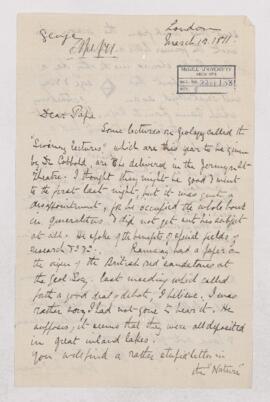 George
London
March 15. 1871
McGILL UNIVERSITY
ARCHIVES
ACC. NO.
Dear Papa
Some lectures on Geology called the
"Swiney lectures", which are this year to be given
by Dr Cobbold, are to be delivered in the Jermyn St
theatre. I thought they might be good & went
to the first last night, but it was quite a
disappointment, for he occupied the whole hour
in generalities & did not get into his subject
at all. He spoke of the benefits of special fields of
research &c &c. Ramsay had a paper on
the origin of the British red sandstones at
the Geol Socy. last meeting which called
forth a good deal of debate, I believe. I was
rather sorry I had not gone to hear it. He
supposes, it seems that they were all deposited
in great inland lakes.
You will find a rather stupid letter in
"Nature"